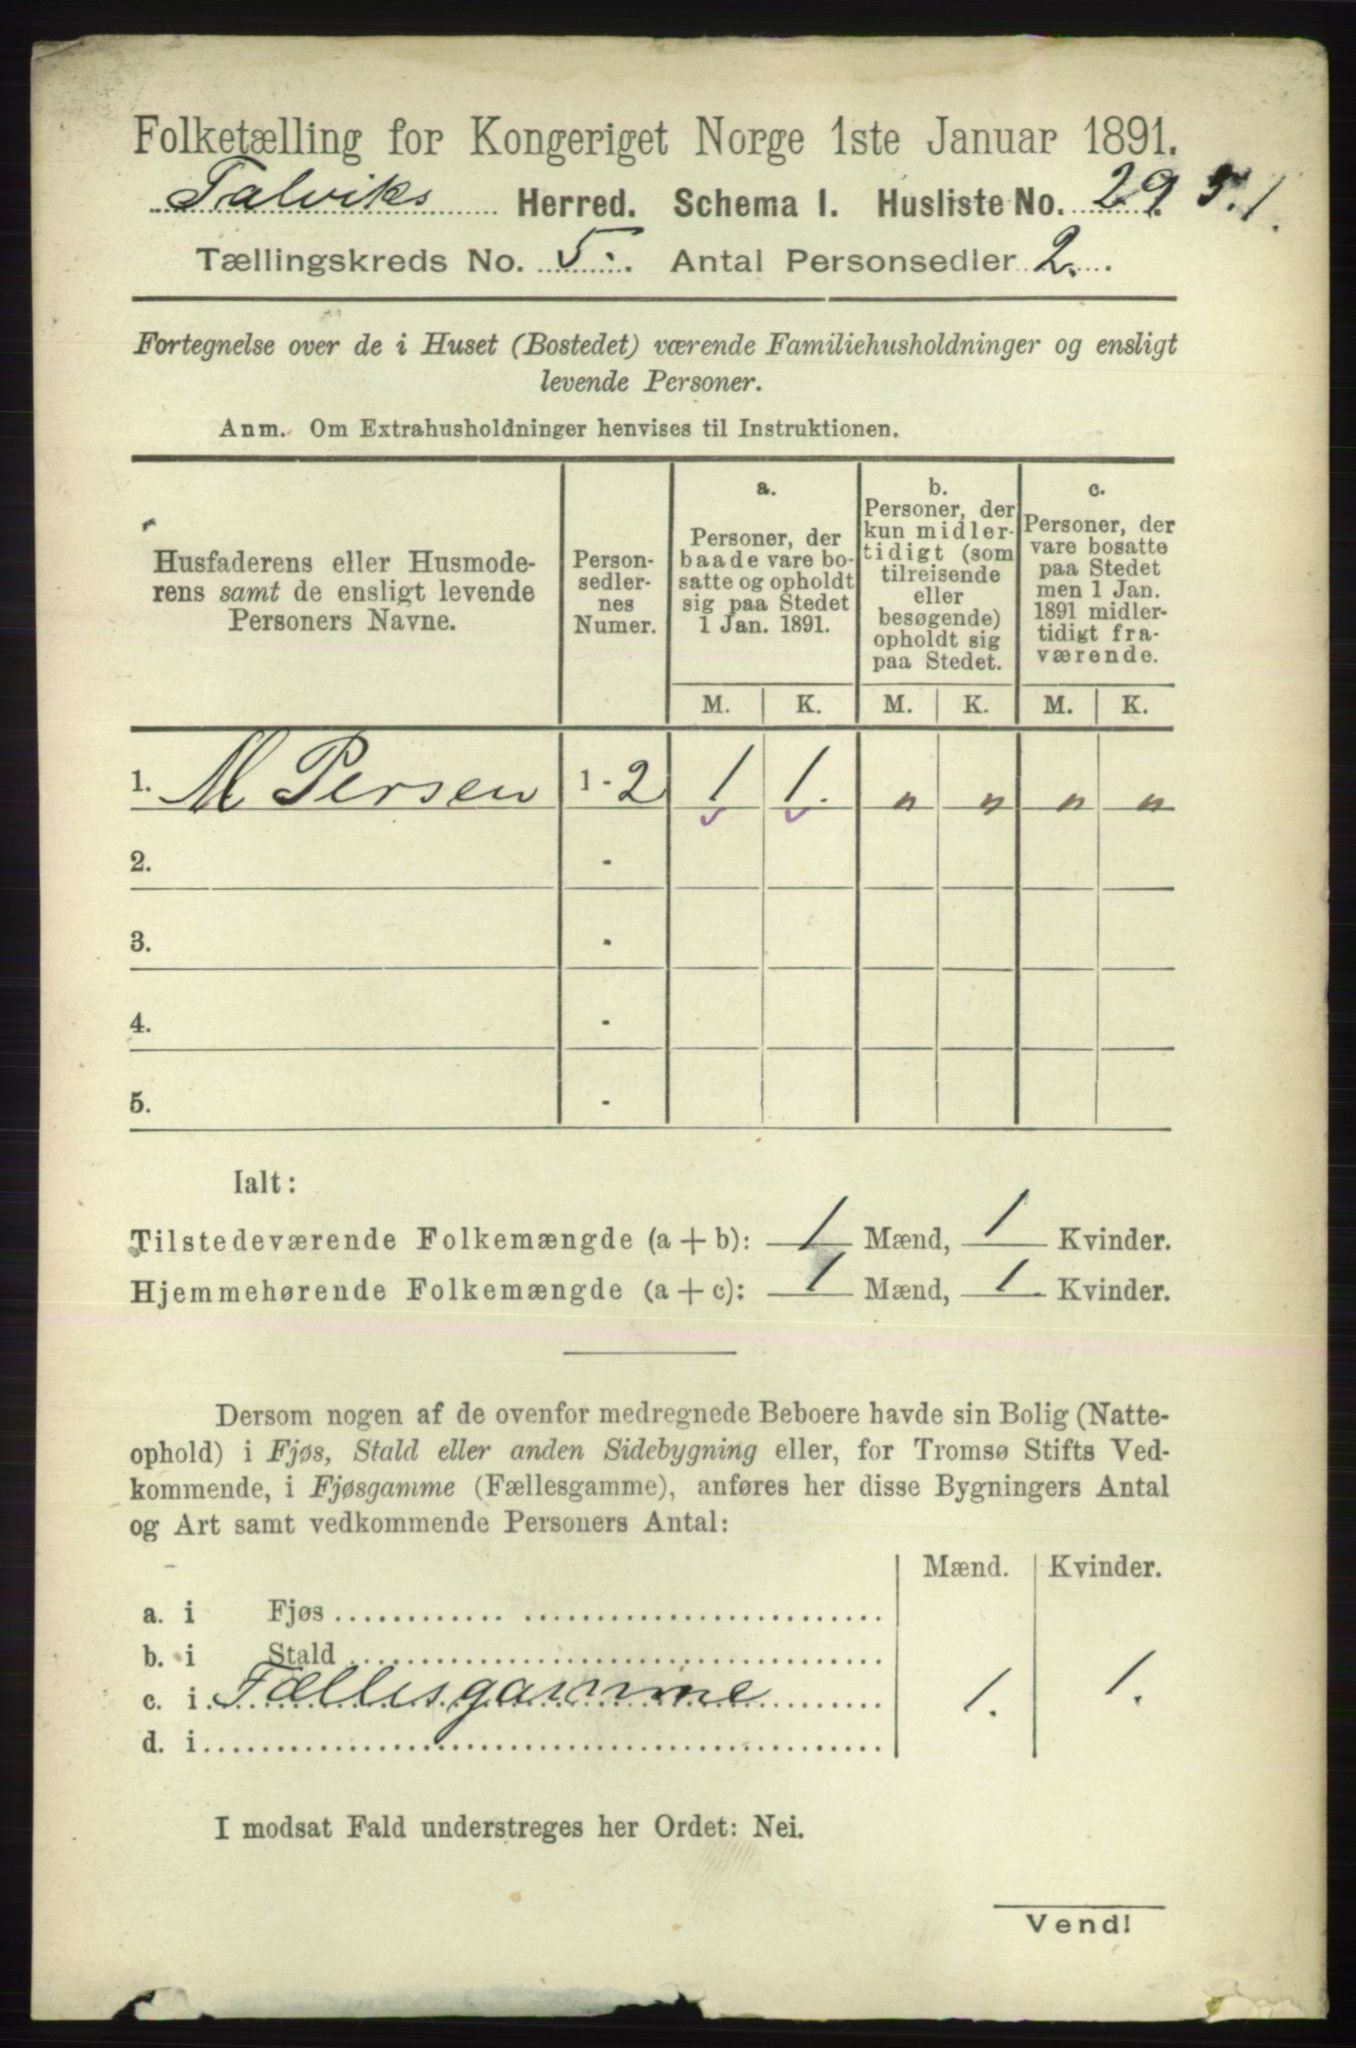 Folketælling for Kongeriget Norge 1ste Januar 1891.
Talviks Herred. Schema I. Husliste No. 29. 5.1.
Tællingskreds No. 5. Antal Personsedler 2.
Fortegnelse over de i Huset (Bostedet) værende Familiehusholdninger og ensligt
levende Personer.
Anm. Om Extrahusholdninger henvises til Instruktionen.
Husfaderens eller Husmode-
rens samt de ensligt levende
Personers Navne.
Person-
sedler-
nes
Numer.
a.
Personer, der
baade vare bo-
satte og opholdt
sig paa Stedet
1 Jan. 1891.
b.
Personer, der
kun midler-
tidigt (som
tilreisende
eller
besøgende)
opholdt sig
paa Stedet.
c.
Personer, der
vare bosatte
paa Stedet
men 1 Jan.
1891 midler-
tidigt fra-
værende.
M. K. M. K. M. K.
1. M Persen 1 - 2 1 1. " " " "
2. -
3. -
4. -
5. -
Ialt:
Tilstedeværende Folkemængde (a + b): 1 Mænd, 1 Kvinder.
Hjemmehørende Folkemængde (a + c): 1 Mænd, 1 Kvinder.
Dersom nogen af de ovenfor medregnede Beboere havde sin Bolig (Natte-
ophold) i Fjøs, Stald eller anden Sidebygning eller, for Tromsø Stifts Ved-
kommende, i Fjøsgamme (Fællesgamme), anføres her disse Bygningers Antal
og Art samt vedkommende Personers Antal:
Mænd. Kvinder.
a. i Fjøs
b. i Stald
c. i Fællesgamme 1. 1.
d. i
I modsat Fald understreges her Ordet: Nei.
Vend!